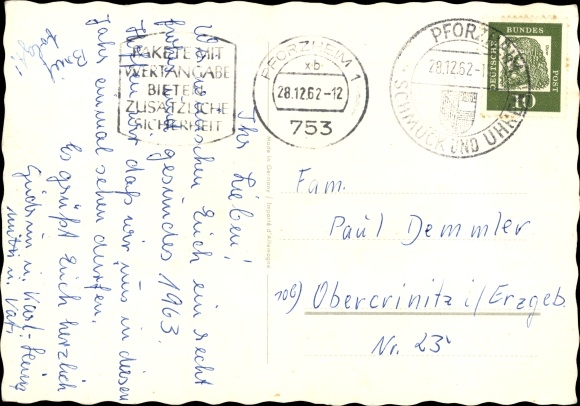 Ihr Lieben!
Wir wünschen Euch ein recht
frohes und gesundes 1963.
Hoffen wir daß wir uns in diesem
Jahr einmal sehen dürfen.
Es grüßt Euch herzlich
Gudrun u. Karl-Heinz
Mutti u. Vati
PAKETE MIT
WERTANGABE
BIETEN
ZUSÄTZLICHE
SICHERHEIT
PFORZHEIM 1
xb
28.12.62-12
753
PFORZHEIM
28.12.62-1
SCHMUCK UND UHREN
DEUTSCHE BUNDESPOST
10
Made in Germany / Importé d'Allemagne
Fam.
Paul Demmler
10b) Obercrinitz i/Erzgeb.
Nr. 23